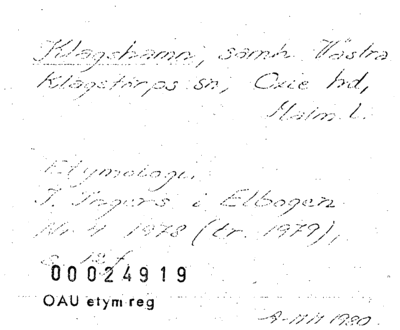 Klagshamn, samh Västra
Klagstorps sn, Oxie hd,
Malm. l.
Etymologi.
I. Ingers i Elbogen
Nr 4 1978 (tr. 1979),
s. f.
00024919
OAU etym reg
1980